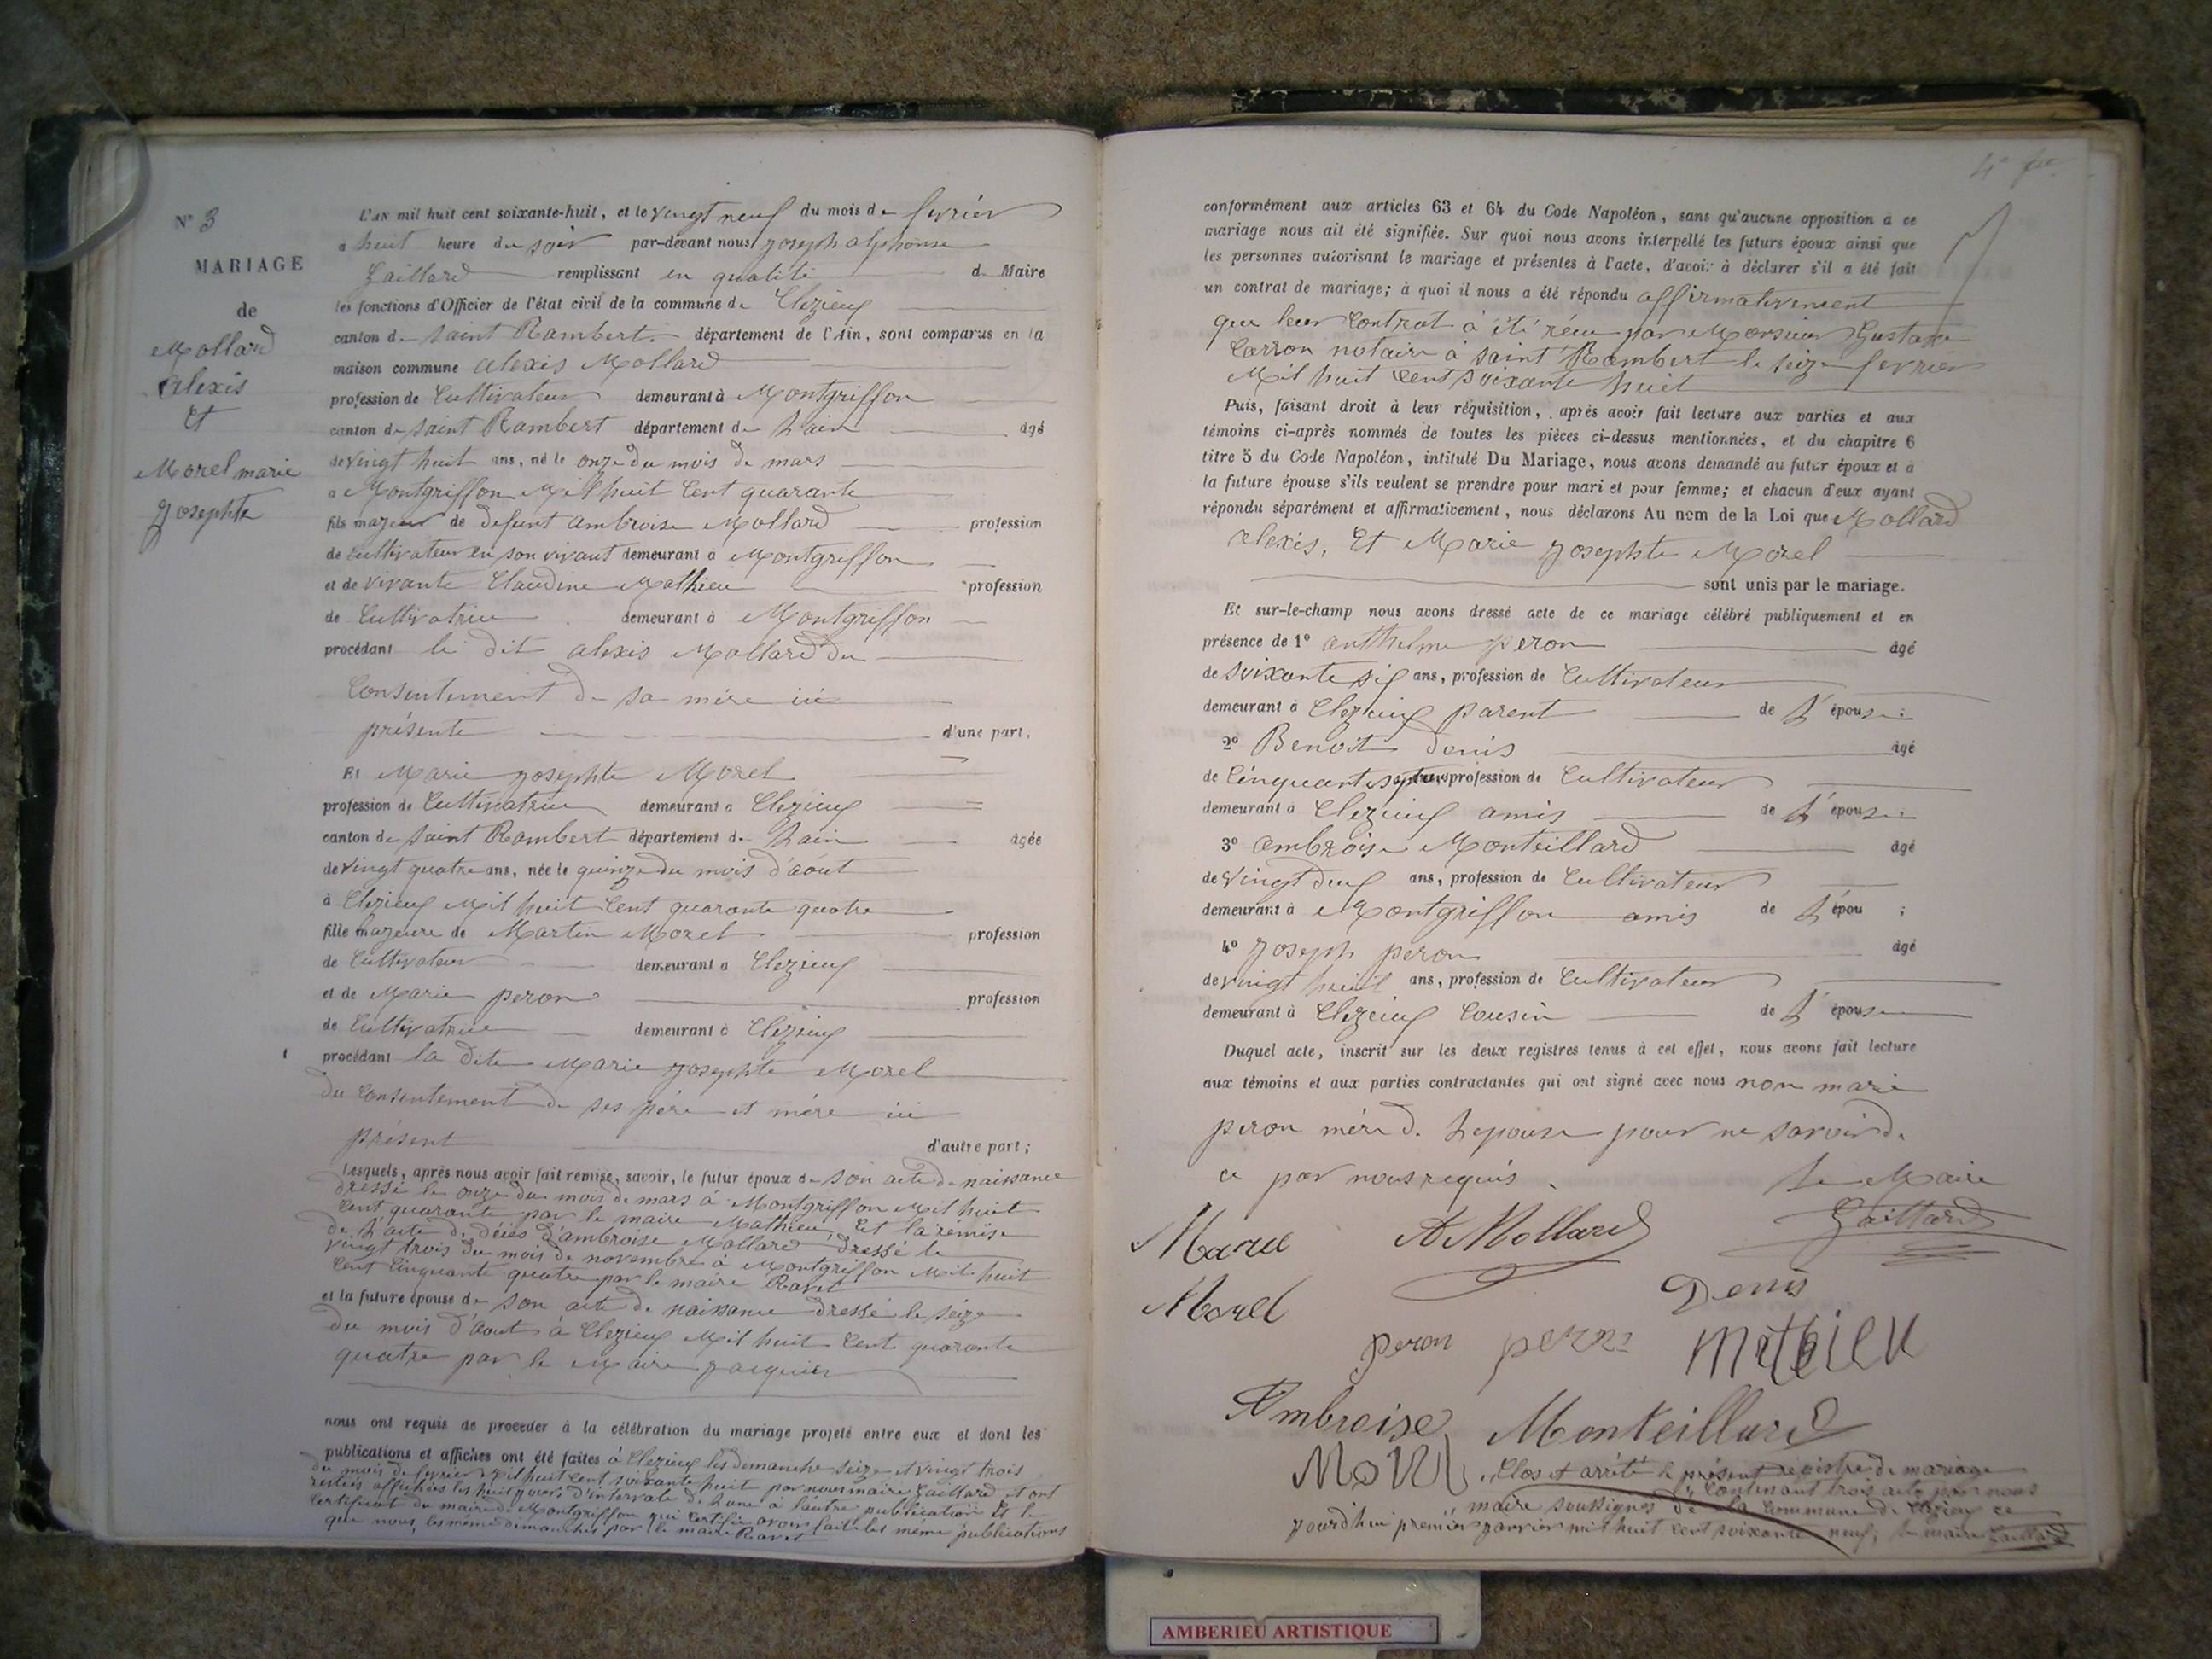 N° 3
MARIAGE
de
Mollard
alexis
Et
Morel marie
josephte
L'AN mil huit cent soixante-huit, et le vingt neuf du mois de fevrier
a huit heure du soir par-devant nous joseph alphonse
Gaillard remplissant en qualité de Maire
les fonctions d'Officier de l'état civil de la commune de Clezieux
canton de saint Rambert département de l'Ain, sont comparus en la
maison commune alexis Mollard
profession de Cultivateur demeurant à Montgriffon
canton de saint Rambert département de Lain âgé
de vingt huit ans, né le onze du mois de mars
a Montgriffon Mil huit Cent quarante
fils majeur de defunt ambroise Mollard profession
de Cultivateur en son vivant demeurant a Montgriffon
et de vivante Claudine Mathieu profession
de Cultivatrice demeurant à Montgriffon
procédant le dit alexis Mollard du
Consentement de sa mère ici
présente d'une part;
Et Marie josephte Morel
profession de Cultivatrice demeurant a Clezieux
canton de saint Rambert département de Lain âgée
de vingt quatre ans, née le quinze du mois d'août
à Clezieux Mil huit Cent quarante quatre
fille majeure de Martin Morel profession
de Cultivateur demeurant a Clezieux
et de Marie peron profession
de Cultivatrice demeurant à Clezieux
procédant la dite Marie josephte Morel
du Consentement de ses père et mère ici
présent d'autre part;
Lesquels, après nous avoir fait remise, savoir, le futur époux de son acte de naissance
dressé le onze du mois de mars à Montgriffon Mil huit
Cent quarante par le maire Mathieu, Et la rémise
de L'acte de décès d'ambroise Mollard dressé le
vingt trois du mois de novembre a Montgriffon Mil huit
Cent Cinquante quatre par le maire Ravet
et la future épouse de son acte de naissance dressé le seize
du mois d'Aout à Clezieux Mil huit Cent quarante
quatre par le Maire jacquier
nous ont requis de proceder à la célébration du mariage projeté entre eux et dont les
publications et affiches ont été faites à Clezieux les dimanche seize et vingt trois
du mois de fevrier Mil huit Cent soixante huit par nous maire Gaillard et ont
restées affichées les huit jours d'intervale de L'une a l'autre publication Et le
Certificat du maire de Montgriffon qui Certifie avoir fait les même publications
que nous, les même dimanches par le maire Ravet
conformément aux articles 63 et 64 du Code Napoléon, sans qu'aucune opposition à ce
mariage nous ait été signifiée. Sur quoi nous avons interpellé les futurs époux ainsi que
les personnes autorisant le mariage et présentes à l'acte, d'avoir à déclarer s'il a été fait
un contrat de mariage; à quoi il nous a été répondu affirmativement
que leur Contrat à été récu par Monsieur Gustave
Carron notaire à saint Rambert le seize fevrier
Mil huit Cent soixante huit
Puis, faisant droit à leur réquisition, après avoir fait lecture aux parties et aux
témoins ci-après nommés de toutes les pièces ci-dessus mentionnées, et du chapitre 6
titre 5 du Code Napoléon, intitulé Du Mariage, nous avons demandé au futur époux et à
la future épouse s'ils veulent se prendre pour mari et pour femme; et chacun d'eux ayant
répondu séparément et affirmativement, nous déclarons Au nom de la Loi que Mollard
alexis, Et Marie josephte Morel
sont unis par le mariage.
Et sur-le-champ nous avons dressé acte de ce mariage célébré publiquement et en
présence de 1° anthelme peron âgé
de soixante six ans, profession de Cultivateur
demeurant à Clezieux parent de L'épouse;
2° Benoit denis âgé
de Cinquante sept ans, profession de Cultivateur
demeurant à Clezieux amis de L'épouse
3° ambroise Monteillard âgé
de vingt deux ans, profession de Cultivateur
demeurant à Montgriffon amis de L'épou ;
4° joseph peron âgé
de vingt huit ans, profession de Cultivateur
demeurant à Clezieux Cousin de L'épouse
Duquel acte, inscrit sur les deux registres tenus à cet effet, nous avons fait lecture
aux témoins et aux parties contractantes qui ont signé avec nous non marie
peron mère de Lepouse pour ne savoir de
ce par nous requis. Le Maire
A Mollard Gaillard
Morel
Denis
peron Mathieu
Ambroise Monteillard
Clos et arrêté le présent registre de mariage
Contenant trois acte par nous
maire soussigné de la Commune de Clezieux ce
jourd'hui premier janvier mil huit cent soixante neuf; le maire Gaillard
AMBERIEU ARTISTIQUE